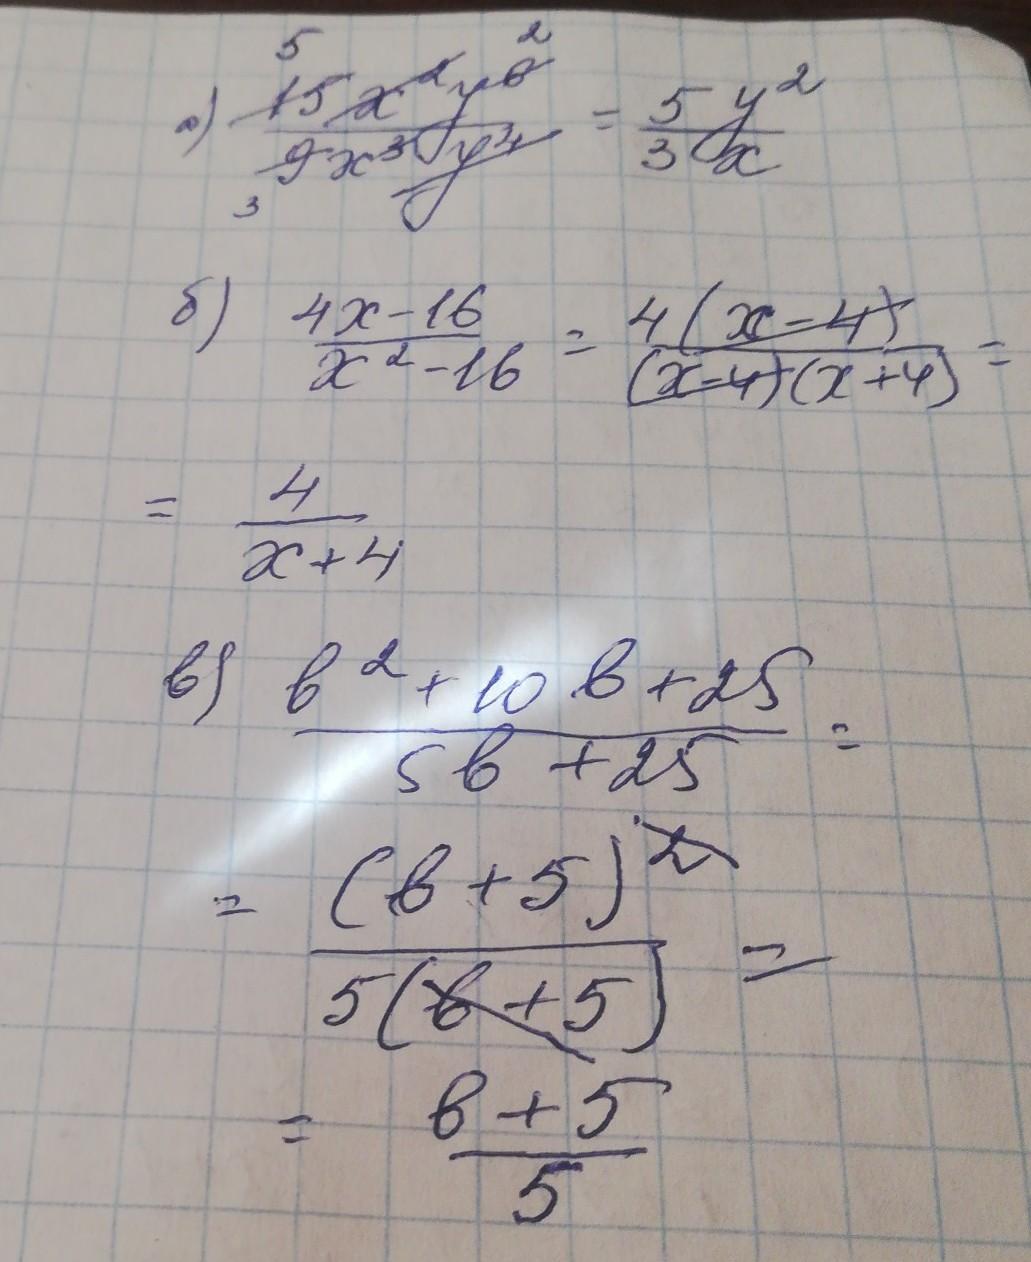 а) 15x²y⁶ / 9x³y⁴ = 5y² / 3x
5 2
3
б) 4x-16 / x²-16 = 4(x-4) / (x-4)(x+4) =
= 4 / x+4
в) b²+10b+25 / 5b+25 =
= (b+5)² / 5(b+5) =
= b+5 / 5